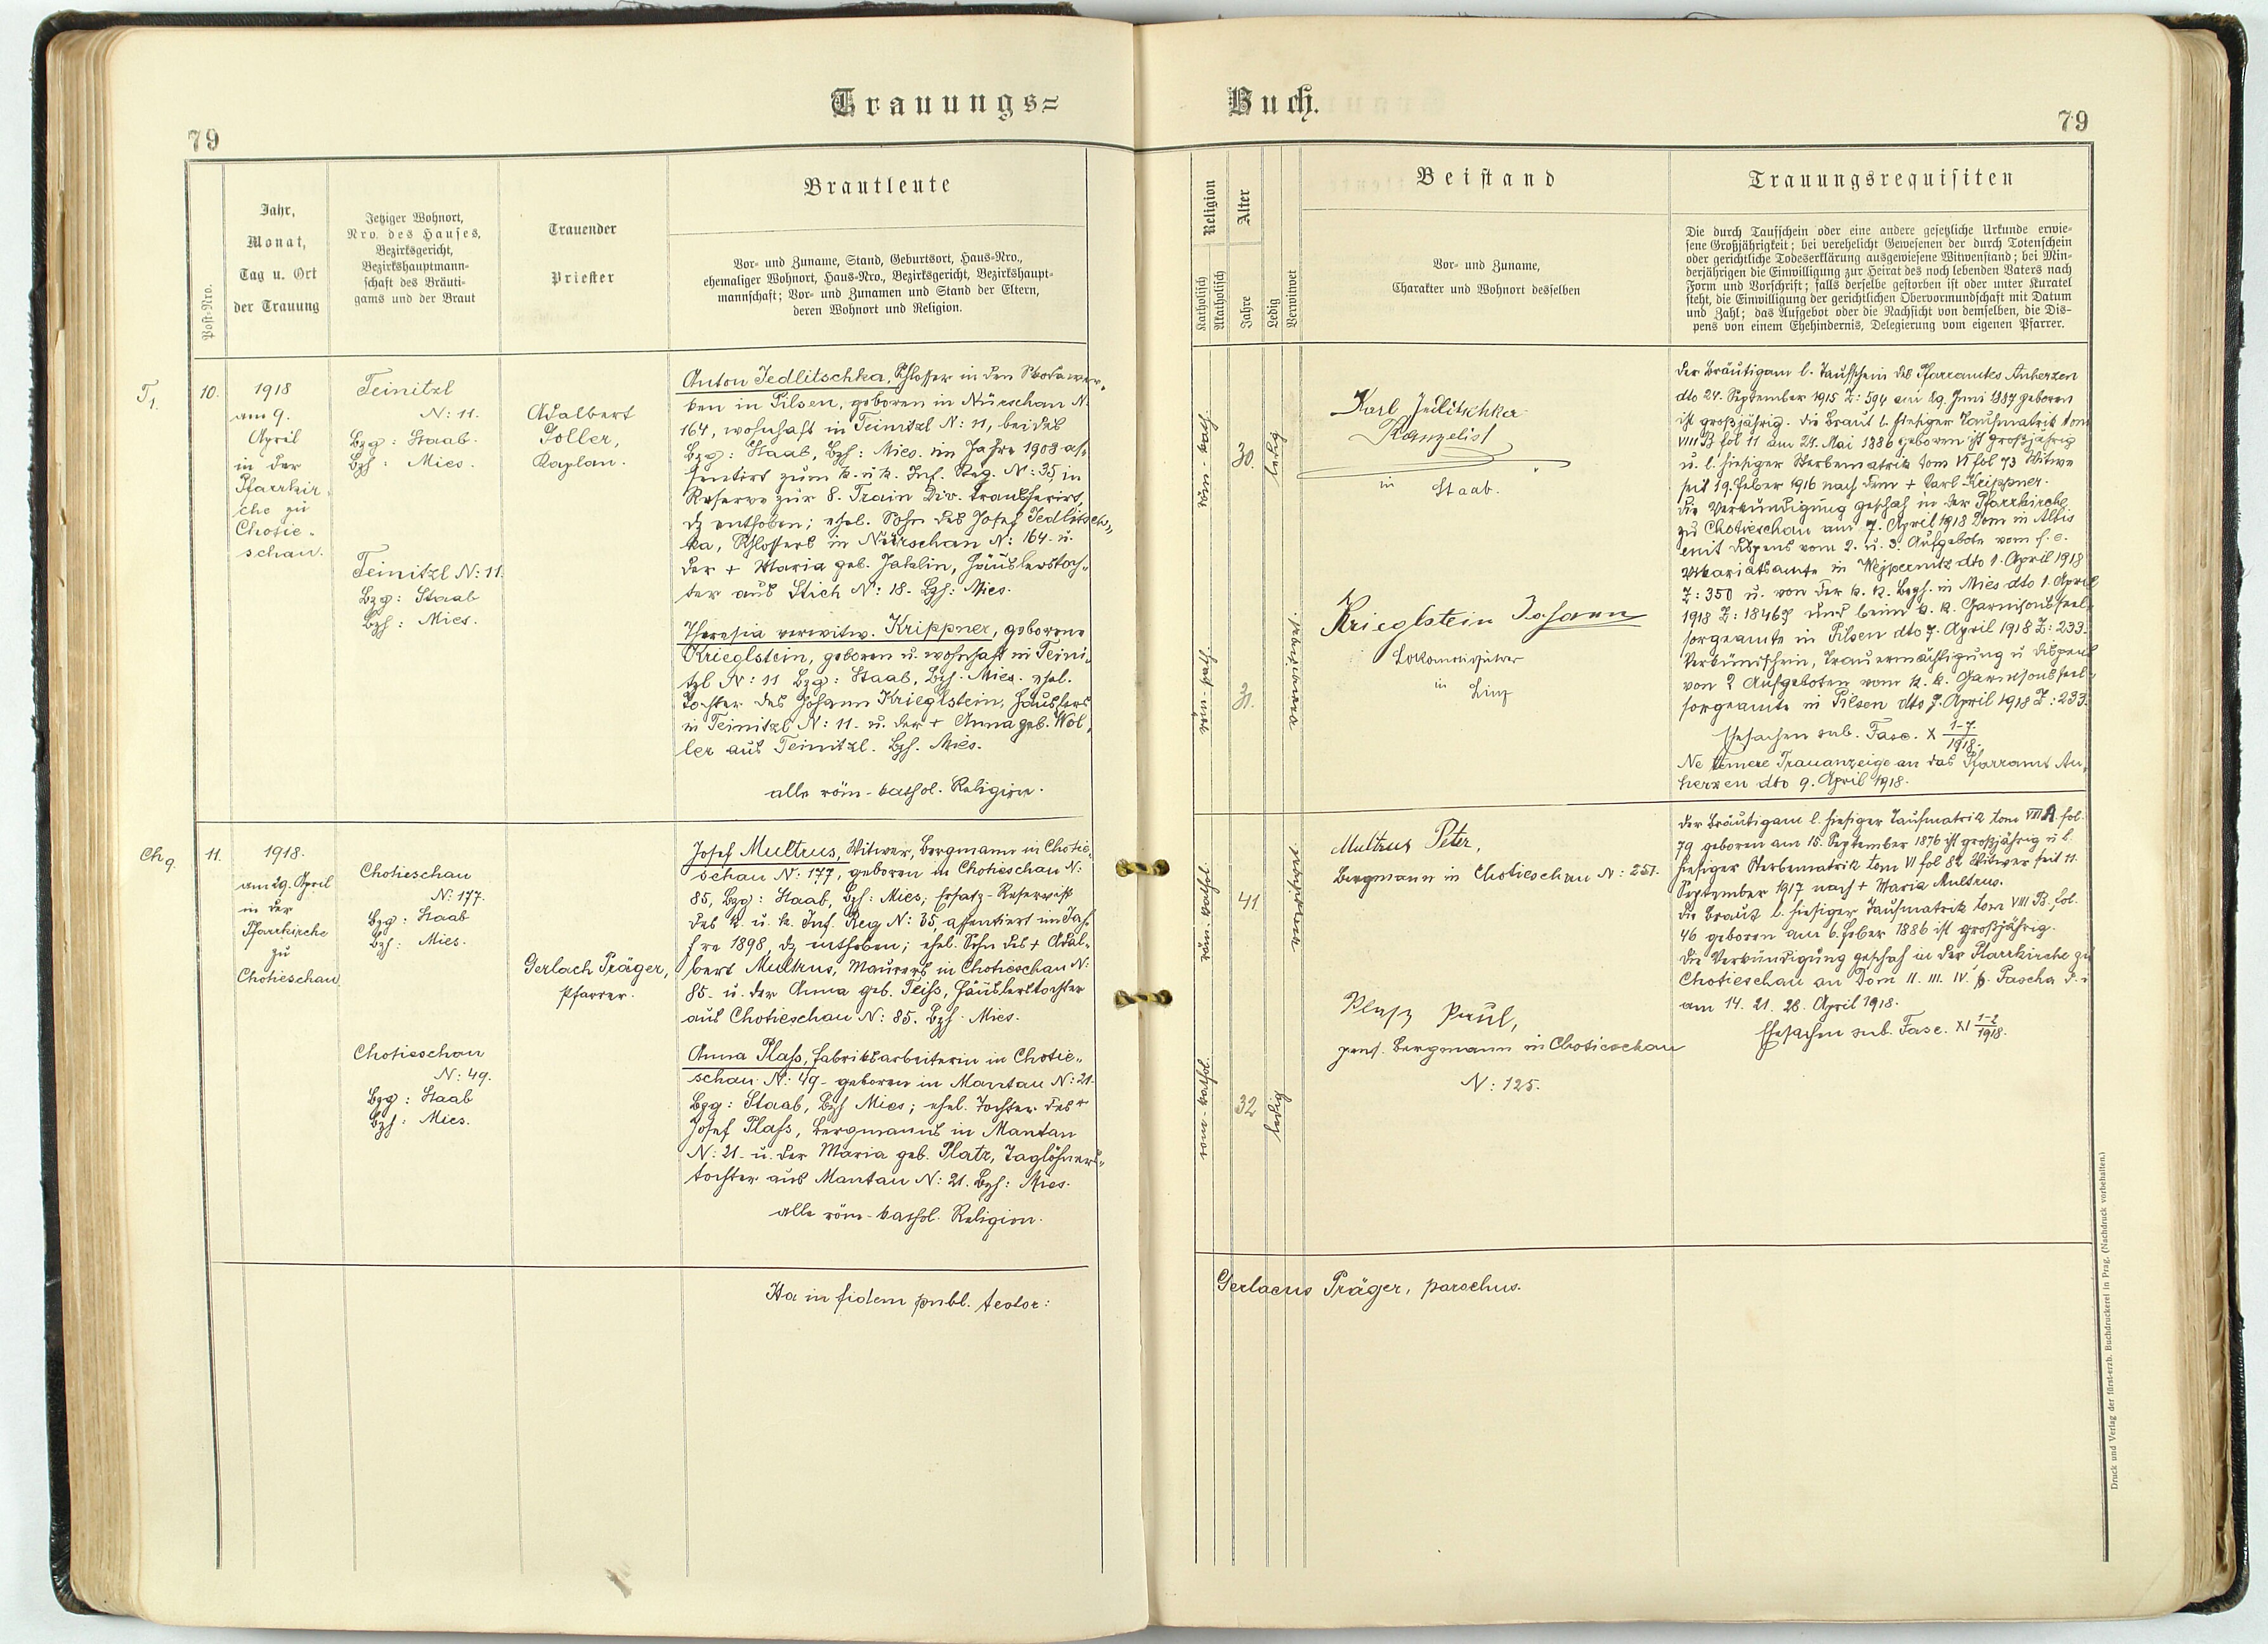 Trauungs=
Buch.
79
79
Post-Nro.
Jahr,
Monat,
Tag u. Ort
der Trauung
Jetziger Wohnort,
Nro. des Hauses,
Bezirksgericht,
Bezirkshauptmann-
schaft des Bräuti-
gams und der Braut
Trauender
Priester
Brautleute
Vor- und Zuname, Stand, Geburtsort, Haus-Nro.,
ehemaliger Wohnort, Haus-Nro., Bezirksgericht, Bezirkshaupt-
mannschaft; Vor- und Zunamen und Stand der Eltern,
deren Wohnort und Religion.
Religion
Katholisch
Akatholisch
Alter
Jahre
Ledig
Verwitwet
Beistand
Vor- und Zuname,
Charakter und Wohnort desselben
Trauungsrequisiten
Die durch Taufschein oder eine andere gesetzliche Urkunde erwie-
sene Großjährigkeit; bei verehelicht Gewesenen der durch Totenschein
oder gerichtliche Todeserklärung ausgewiesene Witwenstand; bei Min-
derjährigen die Einwilligung zur Heirat des noch lebenden Vaters nach
Form und Vorschrift; falls derselbe gestorben ist oder unter Kuratel
steht, die Einwilligung der gerichtlichen Obervormundschaft mit Datum
und Zahl; das Aufgebot oder die Nachsicht von demselben, die Dis-
pens von einem Ehehindernis, Delegierung vom eigenen Pfarrer.
T1.
10.
1918
am 9.
April
in der
Pfarrkir-
che zu
Chotie-
schau.
Teinitzl
N: 11.
Bzg: Staab.
Bzh: Mies.
Teinitzl N: 11.
Bzg: Staab
Bzh: Mies.
Adalbert
Goller,
Kaplan.
Anton Jedlitschka, Schlosser in den Skodawer-
ken in Pilsen, geboren in Nürschan N.
164, wohnhaft in Teinitzl N: 11, beides
Bzg: Staab, Bzh: Mies. im Jahre 1908 as-
sentirt zum k. u. k. Inf. Reg. N: 35, in
Reserve zur 8. Train Div. transferirt,
dz enthoben; ehel. Sohn des Josef Jedlitsch-
ka, Schlossers in Nürschan N: 164. u.
der + Maria geb. Jaklin, Häuslerstoch-
ter aus Stich N: 18. Bzh: Mies.
Theresia verwitw. Krippner, geborene
Krieglstein, geboren u. wohnhaft in Teini-
tzl N: 11 Bzg: Staab, Bzh: Mies. ehel.
Tochter des Johann Krieglstein, Häuslers
in Teinitzl N: 11. u. der + Anna geb. Wol-
ler aus Teinitzl. Bzh. Mies.
alle röm-kathol. Religion.
röm-kath.
30.
ledig
röm-kath.
31.
verwitwet
Karl Jedlitschka
Kanzelist
in Staab.
Krieglstein Johann
Lokomotivführer
in Linz
Der Bräutigam l. Taufschein des Pfarramtes Anherzen
dto 24. September 1915 Z: 594 am 19. Juni 1887 geboren
ist großjährig. Die Braut l. hiesiger Taufmatrik tom
VIII B fol 11 am 24. Mai 1886 geboren ist großjährig
u. l. hiesiger Sterbematrik tom VI fol 73 Witwe
seit 19. Feber 1916 nach dem + Karl Krippner.
Die Verkündigung geschah in der Pfarrkirche
zu Chotieschau am 7. April 1918 Dom in Albis
mit Dispens vom 2. u. 3. Aufgebote vom f. e.
Vikariatsamte in Wejpernitz dto 1. April 1918
Z: 350 u. von der k. k. Bezh. in Mies dto 1. April
1918 Z: 18469 und beim k. k. Garnisonsseel-
sorgeamte in Pilsen dto 7. April 1918 Z: 233.
Verkündschein, Trauermächtigung u Dispens
von 2 Aufgeboten vom k. k. Garnisonsseel-
sorgeamte in Pilsen dto 7. April 1918 Z: 233.
Ehesachen sub. Fasc. X 1-7/1918.
Ne temere Trauanzeige an das Pfarramt An-
herzen dto 9. April 1918.
Ch 9.
11.
1918.
am 29. April
in der
Pfarrkirche
zu
Chotieschau
Chotieschau
N: 177.
Bzg: Staab
Bzh: Mies.
Chotieschau
N: 49.
Bzg: Staab
Bzh: Mies.
Gerlach Präger,
Pfarrer.
Josef Multrus, Witwer, Bergmann in Chotie-
schau N: 177, geboren in Chotieschau N:
85, Bzg: Staab, Bzh: Mies; Ersatz-Reservist
des k. u. k. Inf. Reg N: 35, assentiert im Jah-
re 1898, dz enthoben; ehel. Sohn des + Adal-
bert Multrus, Maurers in Chotieschau N:
85. u. der Anna geb. Teiss, Häuslerstochter
aus Chotieschau N: 85. Bzh. Mies.
Anna Plass, Fabriksarbeiterin in Chotie-
schau N: 49. geboren in Mantau N: 21.
Bzg: Staab, Bzh Mies; ehel. Tochter des +
Josef Plass, Bergmanns in Mantau
N: 21. u. der Maria geb. Platz, Taglöhners-
tochter aus Mantau N: 21. Bzh: Mies.
alle röm-kathol. Religion.
röm. kathol.
41.
verwitwet
röm-kathol.
32
ledig
Multrus Peter,
Bergmann in Chotieschau N: 251.
Plass Paul,
pens. Bergmann in Chotieschau
N: 125.
Der Bräutigam l. hiesiger Taufmatrik tom VIII A fol.
79 geboren am 15. September 1876 ist großjährig u l.
hiesiger Sterbematrik tom VI fol 82 Witwer seit 11.
September 1917 nach + Maria Multrus.
Die Braut l. hiesiger Taufmatrik tom VIII B. fol.
46 geboren am 6. Feber 1886 ist großjährig.
Die Verkündigung geschah in der Pfarrkirche zu
Chotieschau an Dom II. III. IV. p. Pascha d. i
am 14. 21. 28. April 1918.
Ehesachen sub. Fasc. XI 1-2/1918.
Ita in fidem publ. testor:
Gerlacus Präger, parochus.
Druck und Verlag der fürst-erzb. Buchdruckerei in Prag. (Nachdruck vorbehalten.)